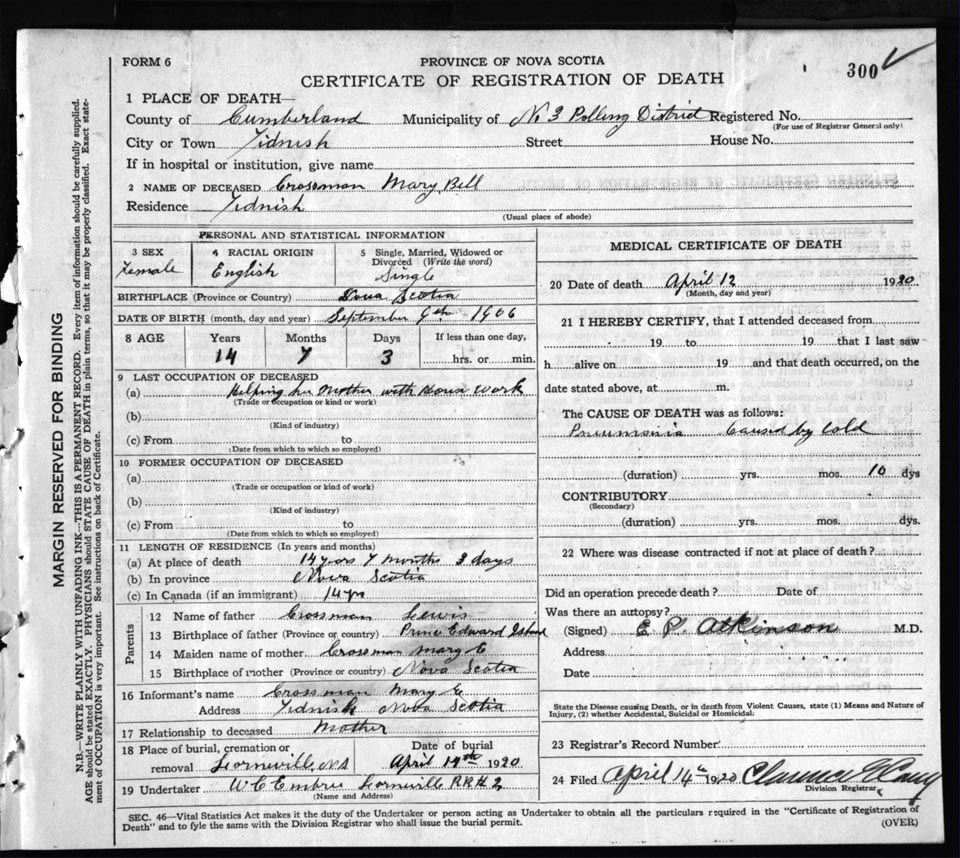 FORM 6
PROVINCE OF NOVA SCOTIA
CERTIFICATE OF REGISTRATION OF DEATH
300
1 PLACE OF DEATH—
County of Cumberland Municipality of No 3 Polling District Registered No.
(For use of Registrar General only)
City or Town Tidnish Street House No.
If in hospital or institution, give name
2 NAME OF DECEASED Crossman Mary Bell
Residence Tidnish
(Usual place of abode)
PERSONAL AND STATISTICAL INFORMATION
3 SEX 4 RACIAL ORIGIN 5 Single, Married, Widowed or Divorced (Write the word)
Female English Single
BIRTHPLACE (Province or Country) Nova Scotia
DATE OF BIRTH (month, day and year) September 9th 1906
8 AGE Years Months Days If less than one day,
14 7 3 hrs. or min.
9 LAST OCCUPATION OF DECEASED
(a) Helping her Mother with House Work
(Trade or occupation or kind or work)
(b)
(Kind of industry)
(c) From to
(Date from which to which so employed)
10 FORMER OCCUPATION OF DECEASED
(a)
(Trade or occupation or kind of work)
(b)
(Kind of industry)
(c) From to
(Date from which to which so employed)
11 LENGTH OF RESIDENCE (In years and months)
(a) At place of death 14 years 7 months 3 days
(b) In province Nova Scotia
(c) In Canada (if an immigrant) 14 yr
Parents
12 Name of father Crossman Lewis
13 Birthplace of father (Province or country) Prince Edward Island
14 Maiden name of mother Crossman Mary E
15 Birthplace of mother (Province or country) Nova Scotia
16 Informant's name Crossman Mary E
Address Tidnish Nova Scotia
17 Relationship to deceased Mother
18 Place of burial, cremation or removal Lorneville, NS Date of burial April 14th 1920
19 Undertaker W C Embree Lorneville RR# 2
(Name and Address)
MEDICAL CERTIFICATE OF DEATH
20 Date of death April 12 1920
(Month, day and year)
21 I HEREBY CERTIFY, that I attended deceased from
19 to 19 that I last saw
h alive on 19 and that death occurred, on the
date stated above, at m.
The CAUSE OF DEATH was as follows:
Pneumonia Caused by Cold
(duration) yrs. mos. 10 dys
CONTRIBUTORY
(Secondary)
(duration) yrs. mos. dys.
22 Where was disease contracted if not at place of death?
Did an operation precede death? Date of
Was there an autopsy?
(Signed) E. P. Atkinson M.D.
Address
Date
State the Disease causing Death, or in death from Violent Causes, state (1) Means and Nature of
Injury, (2) whether Accidental, Suicidal or Homicidal.
23 Registrar's Record Number
24 Filed April 14th 1920 Clarence
Division Registrar
SEC. 46—Vital Statistics Act makes it the duty of the Undertaker or person acting as Undertaker to obtain all the particulars required in the "Certificate of Registration of
Death" and to fyle the same with the Division Registrar who shall issue the burial permit.
(OVER)
MARGIN RESERVED FOR BINDING
N.B.—WRITE PLAINLY WITH UNFADING INK—THIS IS A PERMANENT RECORD. Every item of information should be carefully supplied.
AGE should be stated EXACTLY. PHYSICIANS should STATE CAUSE OF DEATH in plain terms, so that it may be properly classified. Exact state-
ment of OCCUPATION is very important. See instructions on back of Certificate.